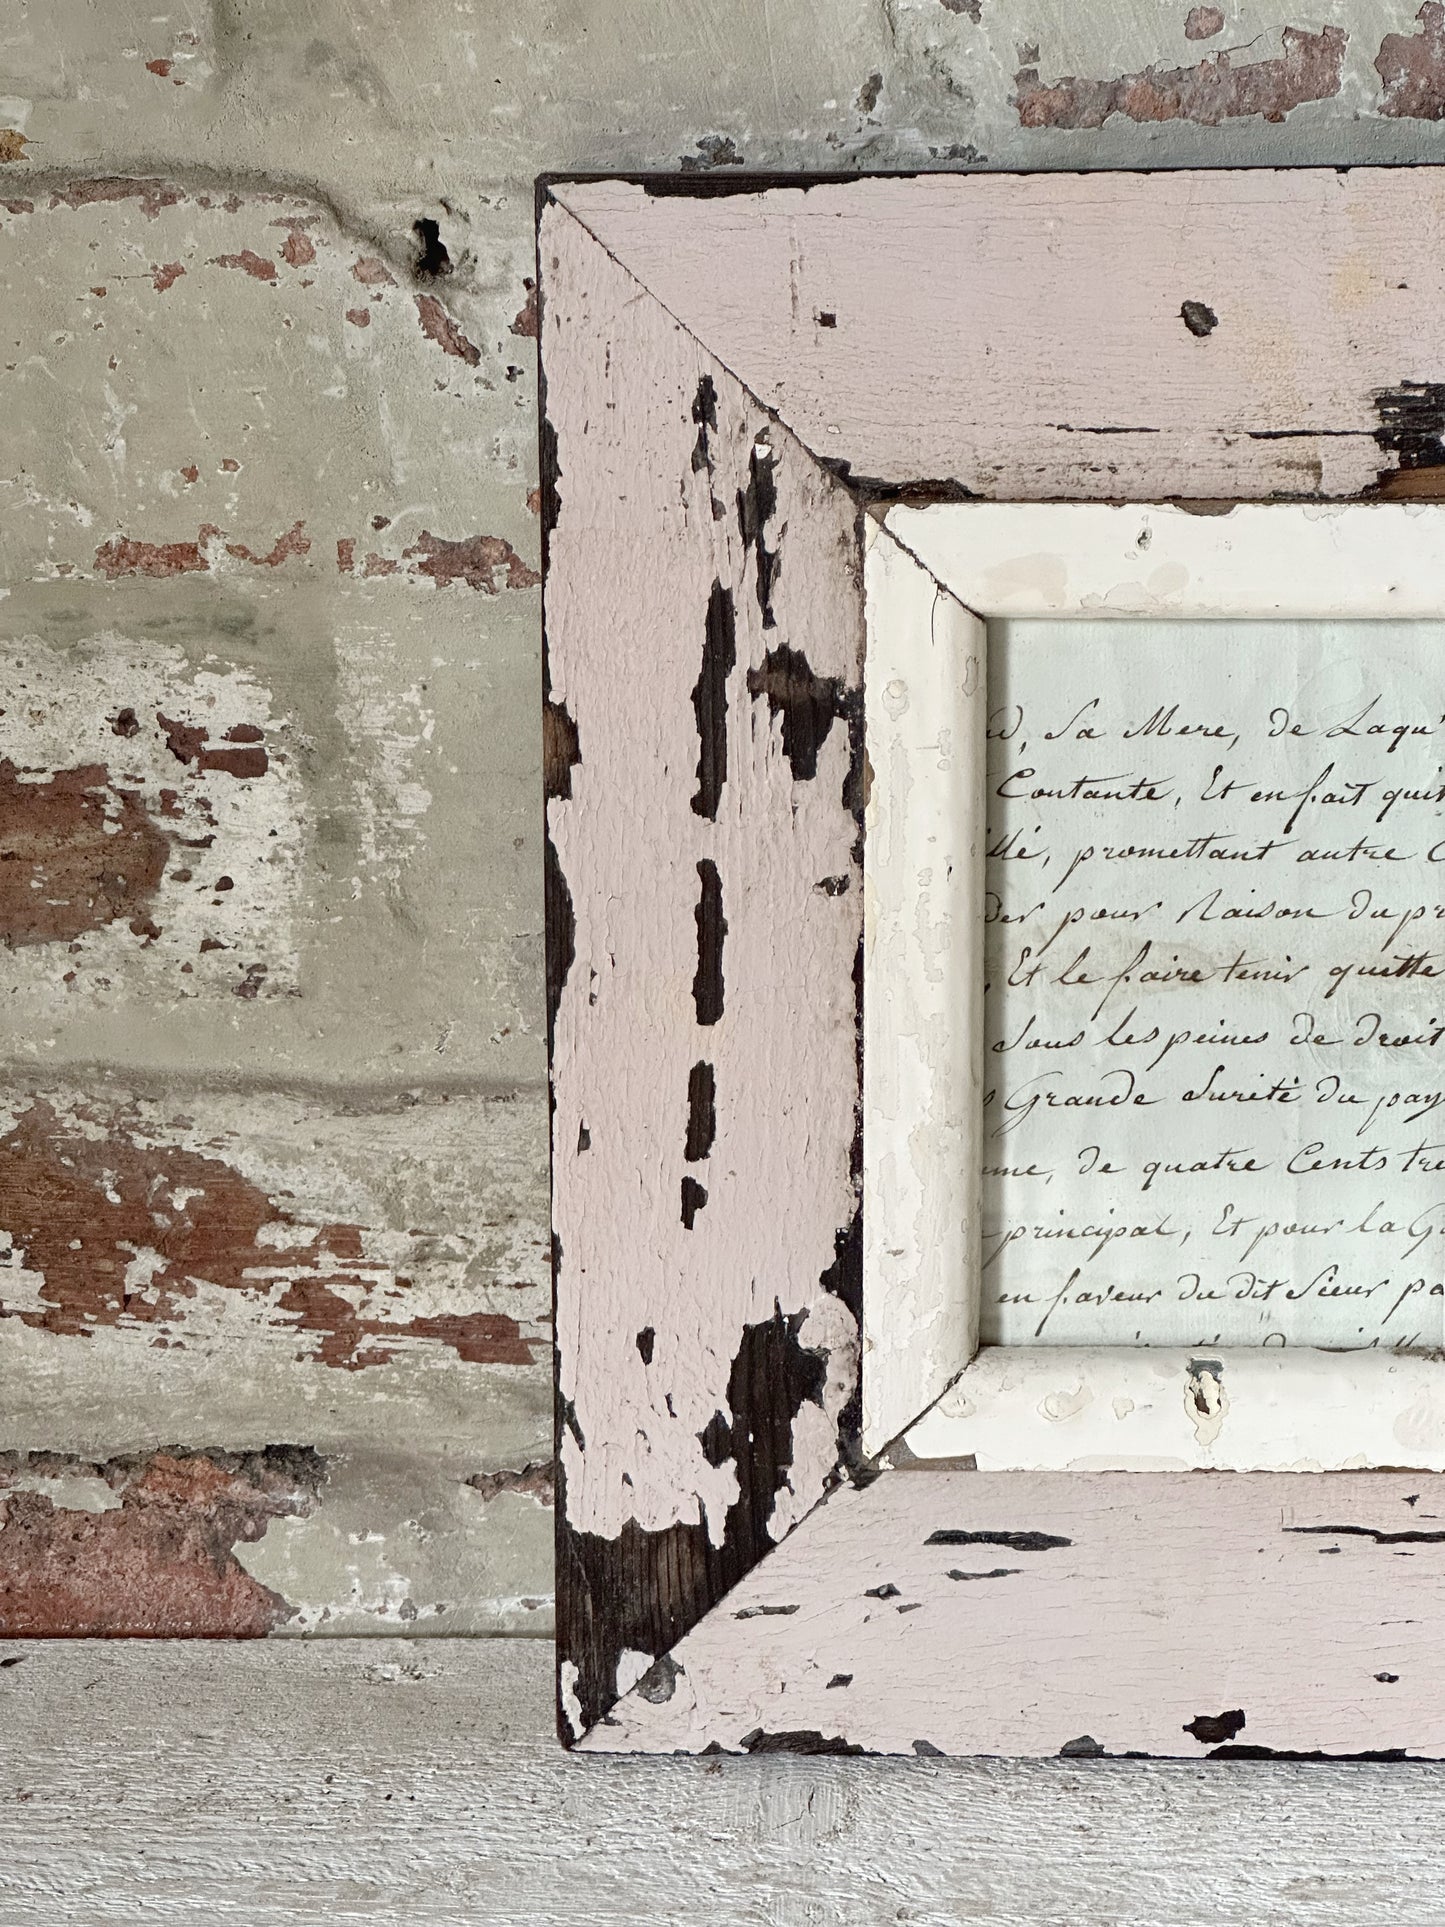 d, Sa Mere, de Laqu'
Contante, Et en fait quit
illé, promettant autre
der pour Raison du pr
, Et le faire tenir quitte
Sous les peines de droit
Grande Sureté du pay
me, de quatre Cents tre
principal, Et pour la G
en faveur du dit Sieur pa